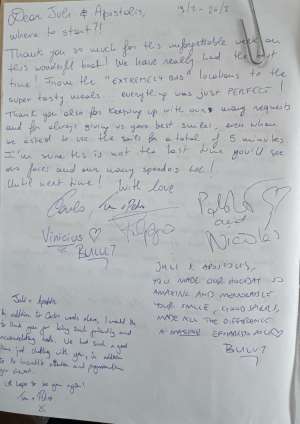 Dear Juli & Apostolis, 19/8 - 26/8
where to start?!
Thank you so much for this unforgettable week on
this wonderful boat! We have really had the best
time! From the "EXTREMELY BAD" locations to the
super tasty meals... everything was just PERFECT!
Thank you also for keeping up with our many requests
and for always giving us your best smiles, even when
we asked to use the sails for a total of 5 minutes.
I'm sure this is not the last time you'll see
our faces and our many speedos lol!
Until next time! With love
Carlo
Filippo
Pablo
and
Nicolas
Vinicius
Bully
JULI & APOSTOLIS,
YOU MADE OUR HOLIDAY SO
AMAZING AND MEMORABLE
YOUR SMILE, GOOD SPIRIT,
MADE ALL THE DIFFERENCE
BULLY
Juli & Apostolis
In addition to Carlo's words above, I would like
to thank you for being such friendly and
accommodating hosts. We had such a good
time just chatting with you, in addition
to the incredible attention and
We hope to see you again!